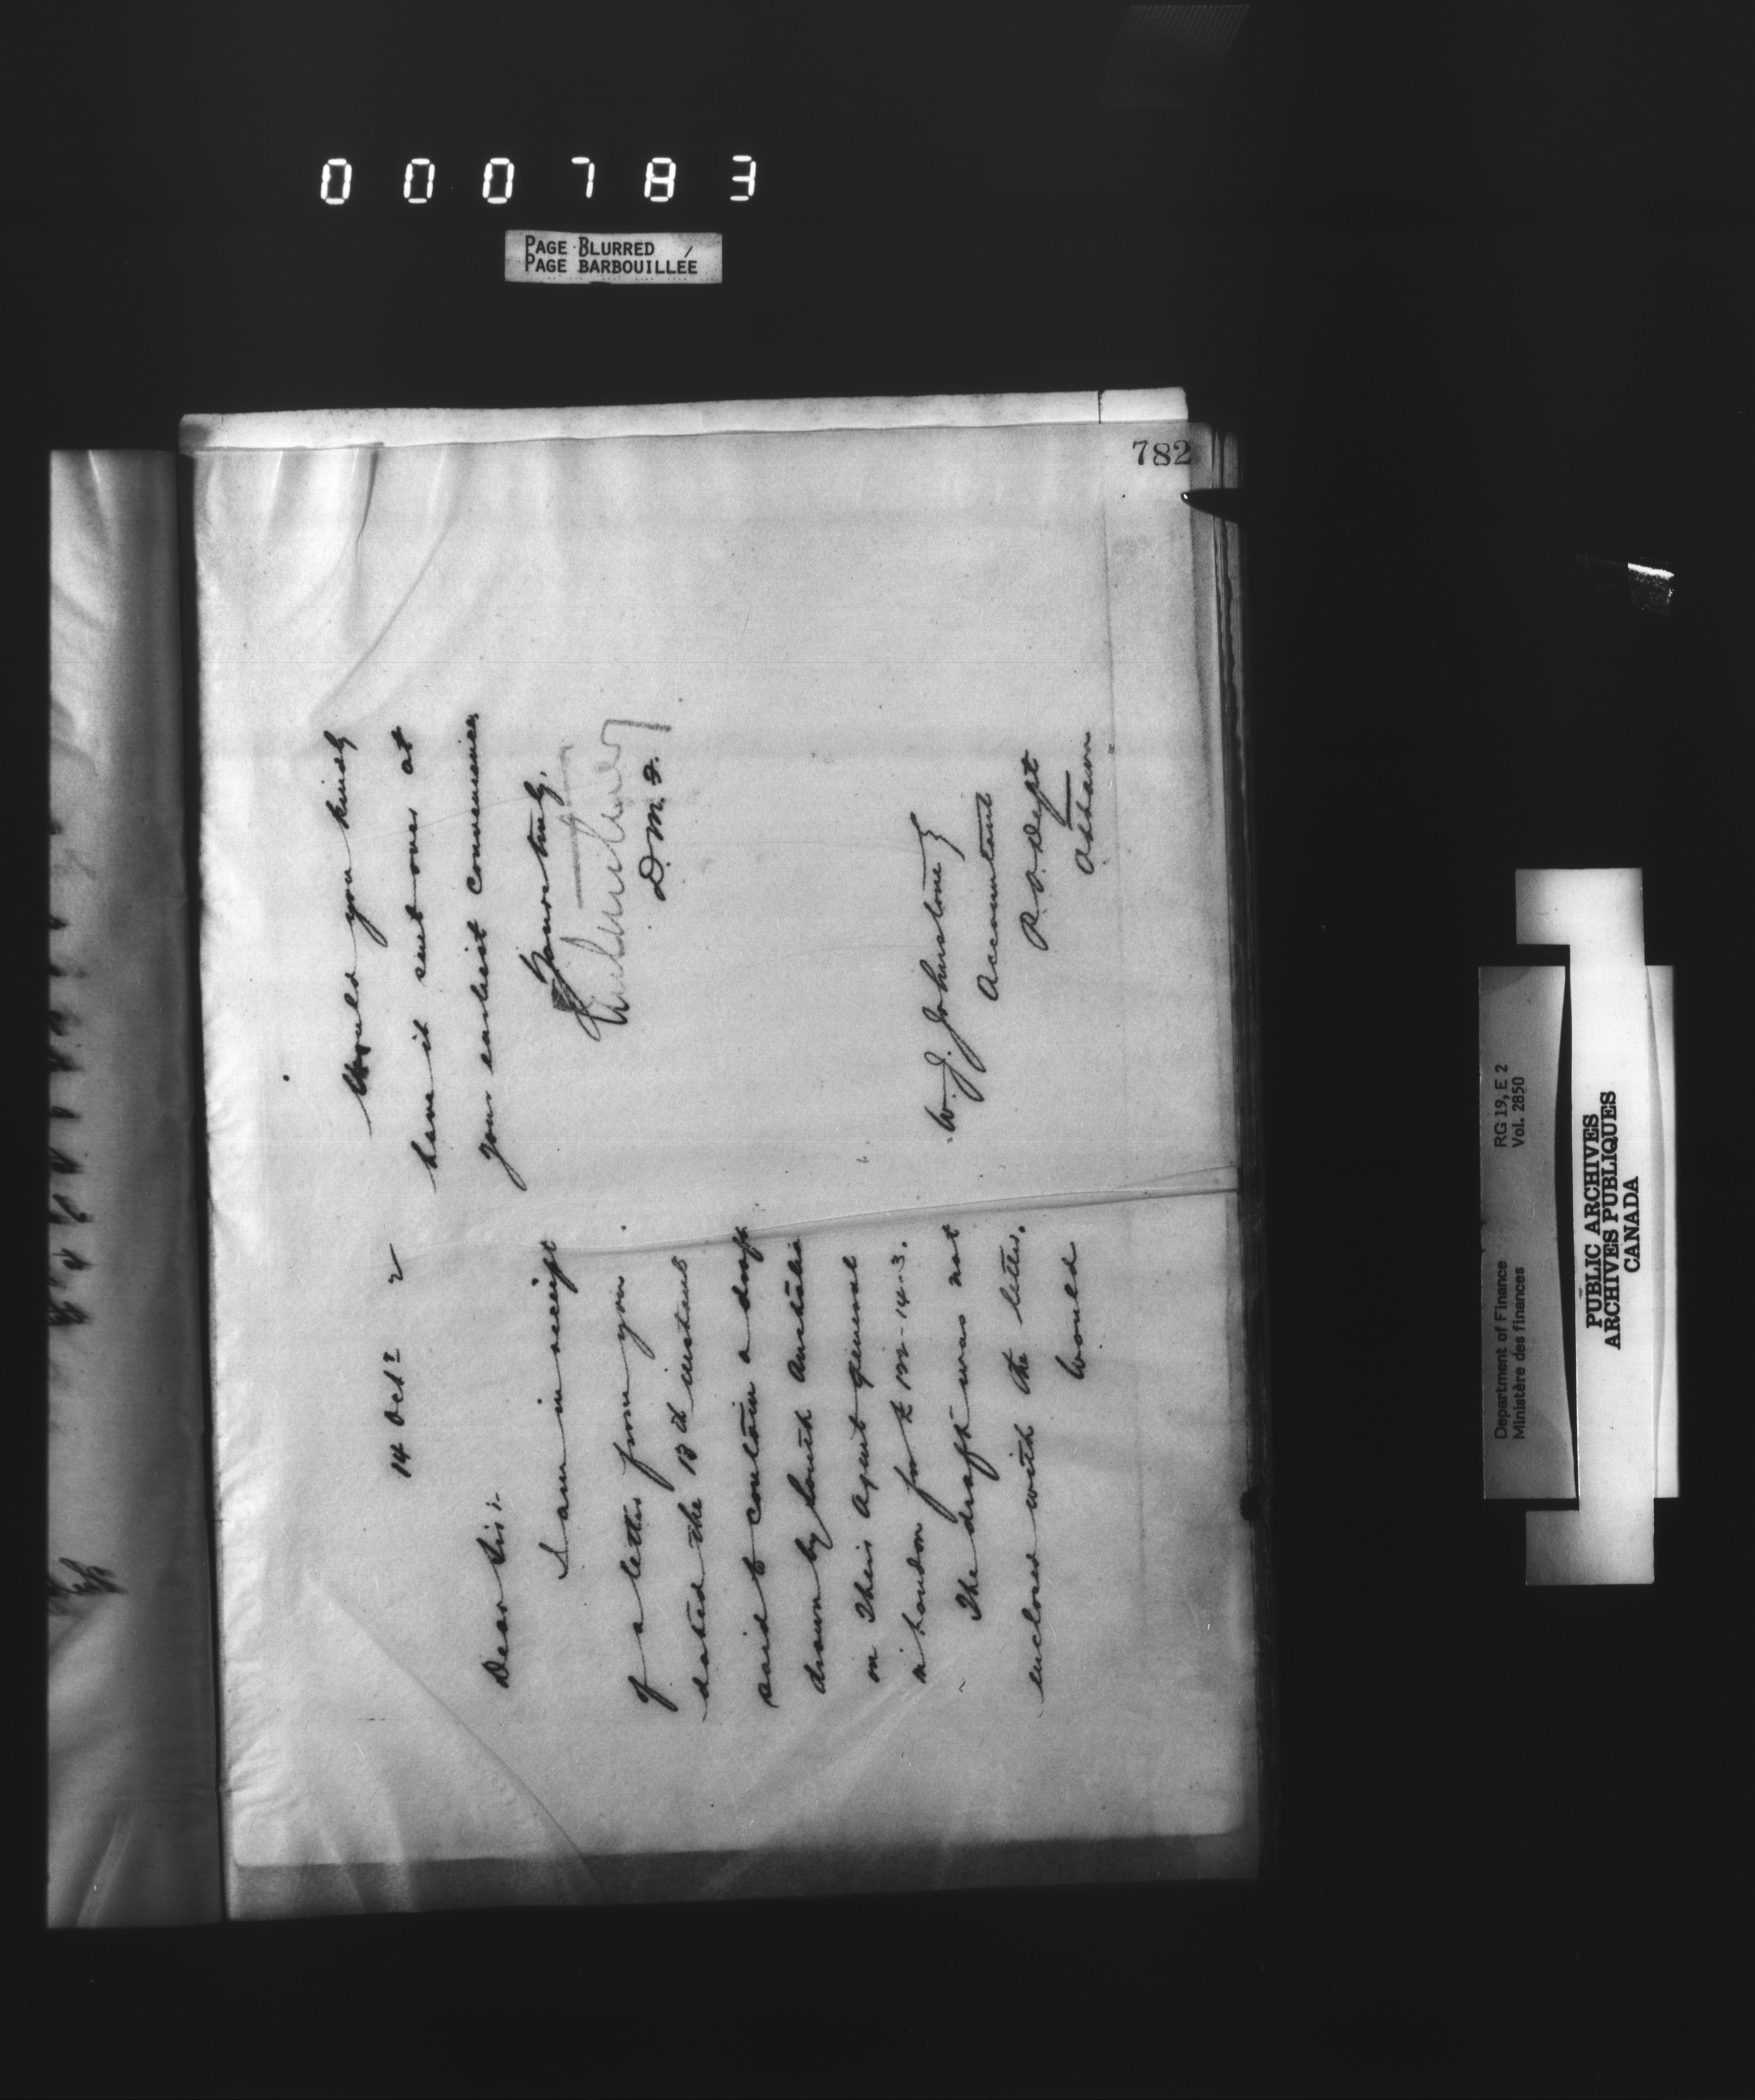 000783
PAGE BLURRED
PAGE BARBOUILLÉE
782
14 Oct 2
Dear Sir:-
I am in receipt
of a letter from you
dated the 13th instant
said to contain a draft
drawn by South Australia
on Their Agent General
in London for £ 122-14-3.
The draft was not
enclosed with the letter.
Would
Would you kindly
have it sent over at
your earliest convenience,
Yours truly,
D.M.F.
W. J. Johnstone }
Accountant
P.O. Dept
Ottawa
Department of Finance RG 19, E 2
Ministère des finances Vol. 2850
PUBLIC ARCHIVES
ARCHIVES PUBLIQUES
CANADA